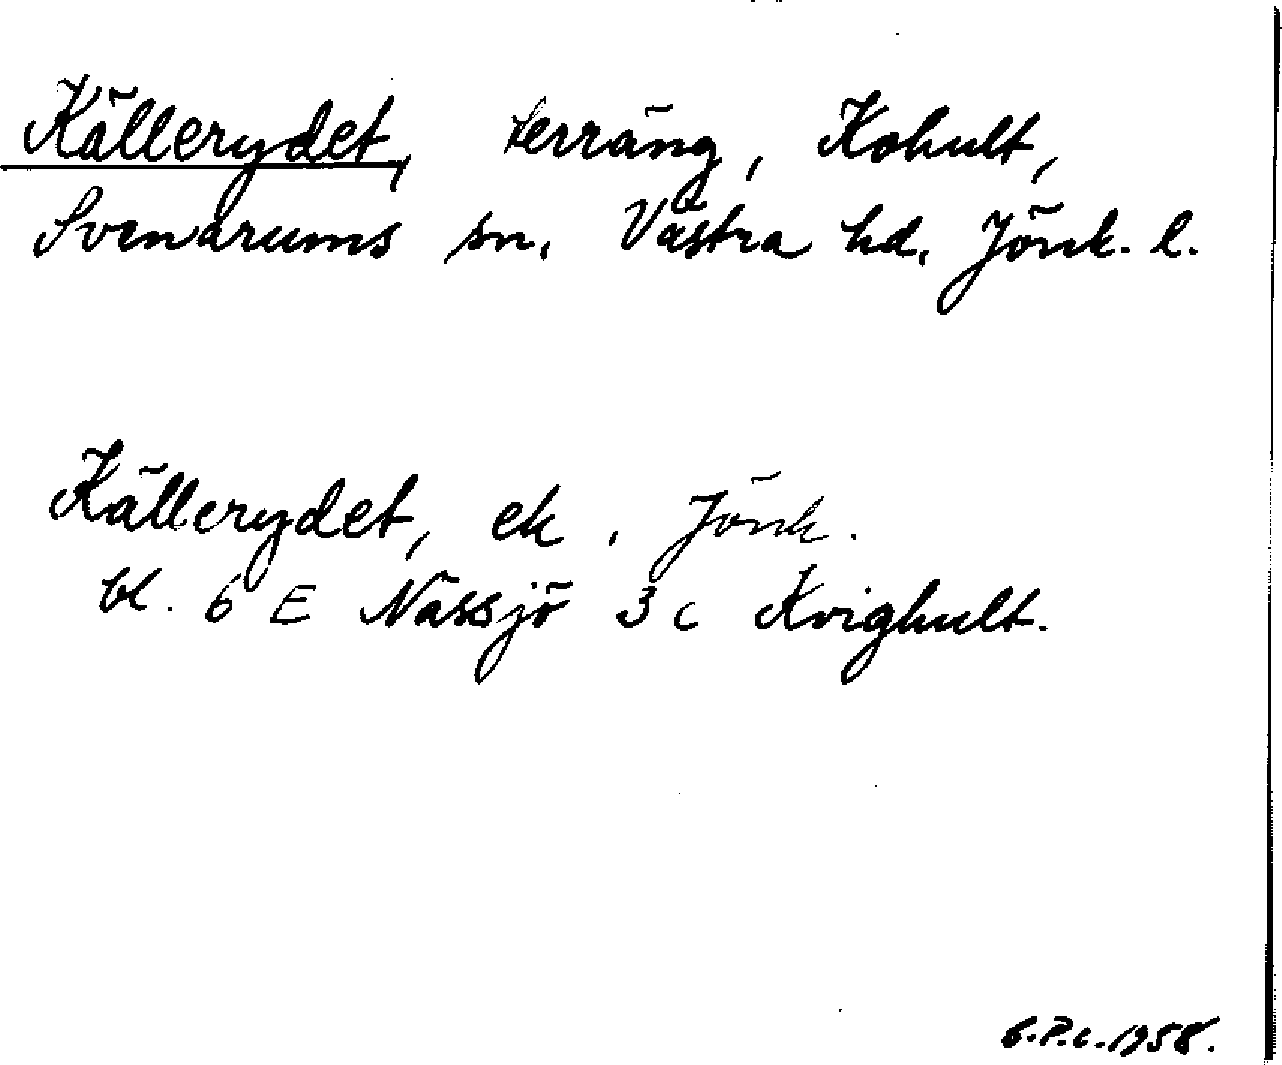 Källerydet, terräng, Kohult,
Svenarums sn. Västra hd. Jönk. l.
Källerydet, ek. Jönk.
bl. 6 E Nässjö 3 c Kvighult.
1958.